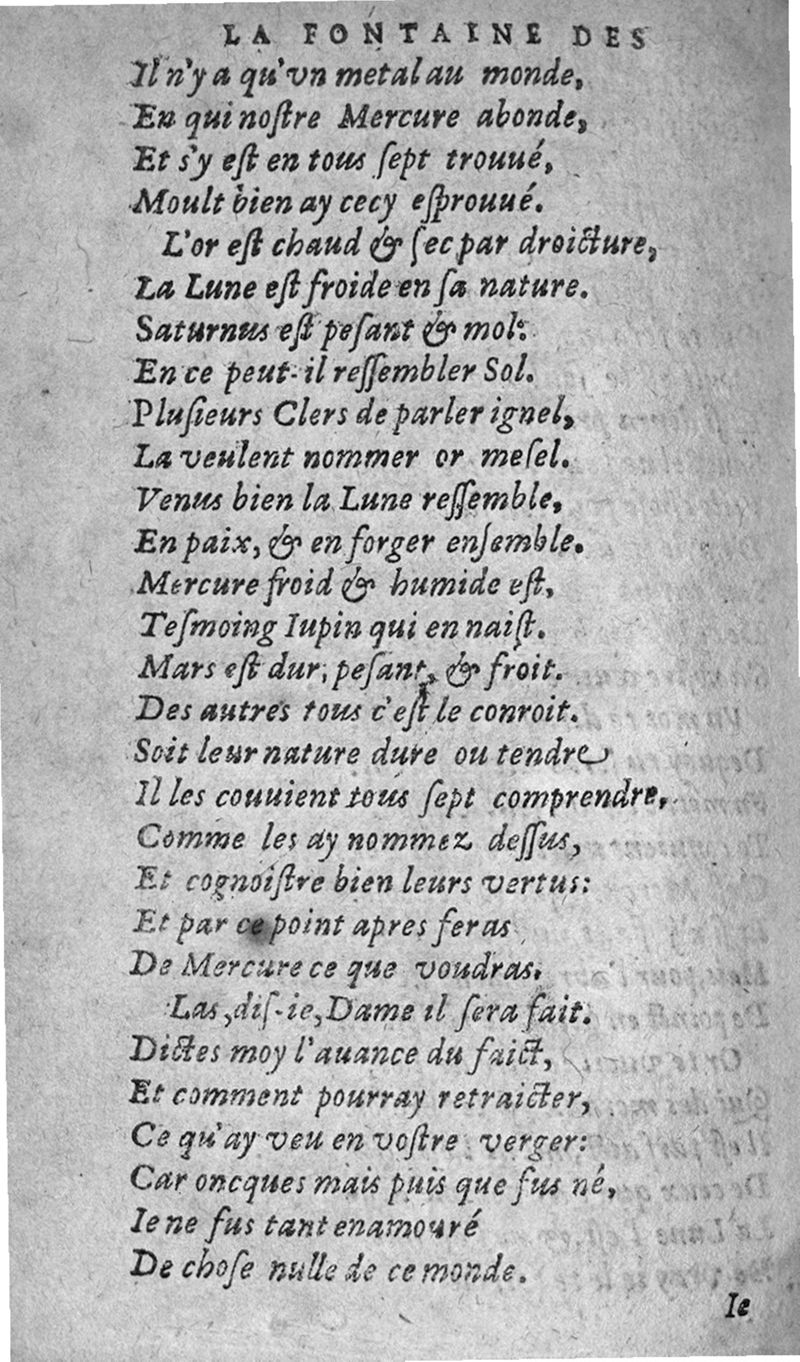 LA FONTAINE DES
Il n'y a qu'vn metal au monde,
En qui noſtre Mercure abonde,
Et s'y eſt en tous ſept trouué,
Moult bien ay cecy eſprouué.
L'or eſt chaud & ſec par droicture,
La Lune eſt froide en ſa nature.
Saturnus eſt peſant & mol:
En ce peut-il reſſembler Sol.
Pluſieurs Clers de parler ignel,
La veulent nommer or meſel.
Venus bien la Lune reſſemble,
En paix, & en forger enſemble.
Mercure froid & humide eſt,
Teſmoing Iupin qui en naiſt.
Mars eſt dur, peſant, & froit.
Des autres tous c'eſt le conroit.
Soit leur nature dure ou tendre
Il les couuient tous ſept comprendre,
Comme les ay nommez deſſus,
Et cognoiſtre bien leurs vertus:
Et par ce point apres feras
De Mercure ce que voudras.
Las, diſ-ie, Dame il ſera fait.
Dictes moy l'auance du faict,
Et comment pourray retraicter,
Ce qu'ay veu en voſtre verger:
Car oncques mais puis que fus né,
Ie ne fus tant enamouré
De choſe nulle de ce monde.
Ie